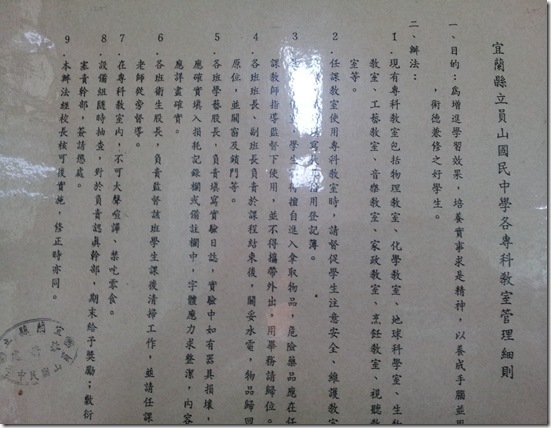 宜蘭縣立員山國民中學各專科教室管理細則
一、目的:為增進學習效果,培養實事求是精神,以養成手腦並用
,術德兼修之好學生。
二、辦法:
1.現有專科教室包括物理教室、化學教室、地球科學室、生物
教室、工藝教室、音樂教室、家政教室、烹飪教室、視聽教
室等。
2.任課教室使用專科教室時,請督促學生注意安全、維護教室
用登記簿。
3. 學生 擅自進入拿取物品,危險藥品應在任
課教師指導監督下使用,並不得攜帶外出,用畢請歸位。
4.各班班長、副班長負責於課程結束後,關妥水電,物品歸回
原位,並關窗及鎖門等。
5.各班學藝股長,負責填寫實驗日誌,實驗中如有器具損壞,
應確實填入損耗記錄欄或備註欄中,字體應力求整潔,內容
應詳盡確實。
6.各班衛生股長,負責監督該班學生課後清掃工作,並請任課
老師從旁督導。
7.在專科教室內,不可大聲喧譁、禁吃零食。
8.設備組隨時抽查,對於負責認真幹部,期末給予獎勵;敷衍
塞責幹部,簽請懲處。
9.本辦法經校長核可後實施,修正時亦同。